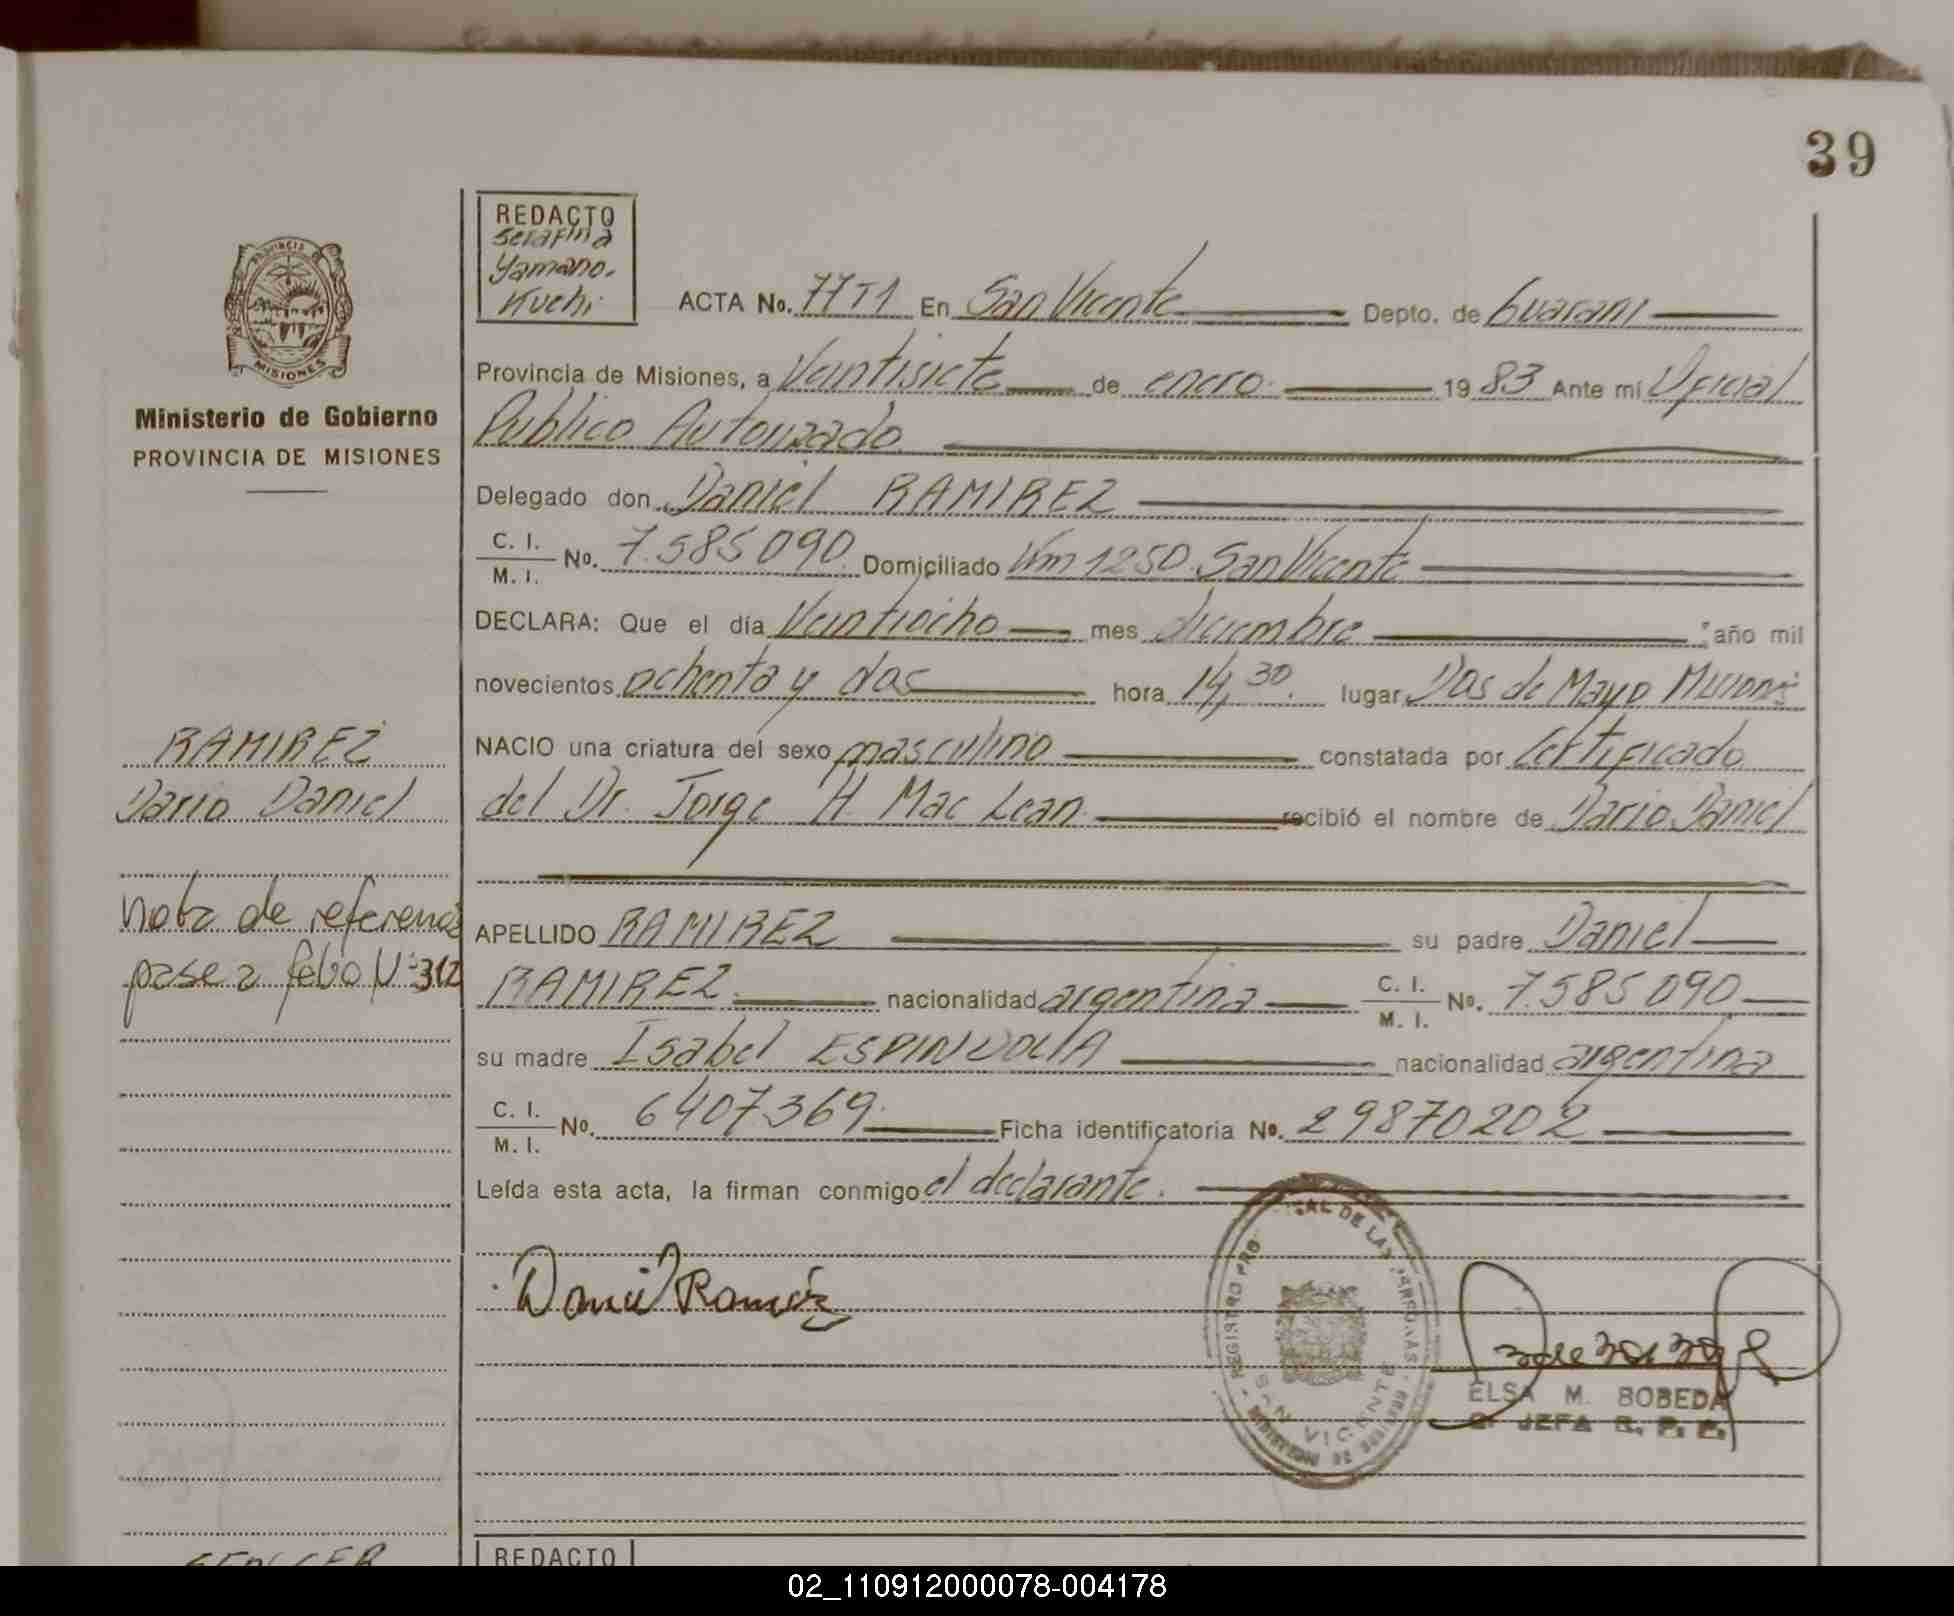 39
REDACTO
Serafina
Yamano.
Kuchi
ACTA No. 77 T1 En San Vicente Depto. de Guarani
PROVINCIA
MISIONES
Provincia de Misiones, a Veintisiete de enero. 1983 Ante mí Oficial
Ministerio de Gobierno
PROVINCIA DE MISIONES
Publico Autorizado.
Delegado don Daniel RAMIREZ
C. I.
M. I. No. 7.585090. Domiciliado Km 1250. San Vicente
DECLARA: Que el día Veintiocho mes diciembre año mil
novecientos ochenta y dos hora 14,30. lugar Dos de Mayo Misiones
RAMIREZ
NACIO una criatura del sexo masculino constatada por Certificado
Dario Daniel
del Dr. Jorge H. Mac Lean. recibió el nombre de Dario Daniel
nota de referencia
pase a folio Nº 312
APELLIDO RAMIREZ su padre Daniel
RAMIREZ. nacionalidad argentina C. I.
M. I. No. 7.585090
su madre Isabel ESPINDOLA nacionalidad argentina
C. I.
M. I. No. 6407.369. Ficha identificatoria No. 29870202
Leída esta acta, la firman conmigo el declarante.
Daniel Ramirez
REGISTRO PRO AL DE LAS PERSONAS
SAN VICENTE
ELSA M. BOBEDA
JEFA R. P. P.
REDACTO
02_110912000078-004178